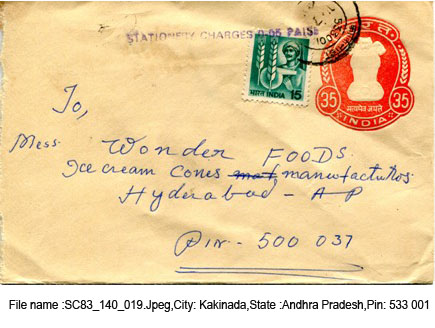 STATIONERY CHARGES 0.05 PAISE
भारत INDIA 15
35 35
सत्यमेव जयते
INDIA
To,
Mess. Wonder FOODS.
Ice cream Cones mat manufacturos
Hyderabad - A P
Pin - 500 037
File name :SC83_140_019.Jpeg,City: Kakinada,State :Andhra Pradesh,Pin: 533 001